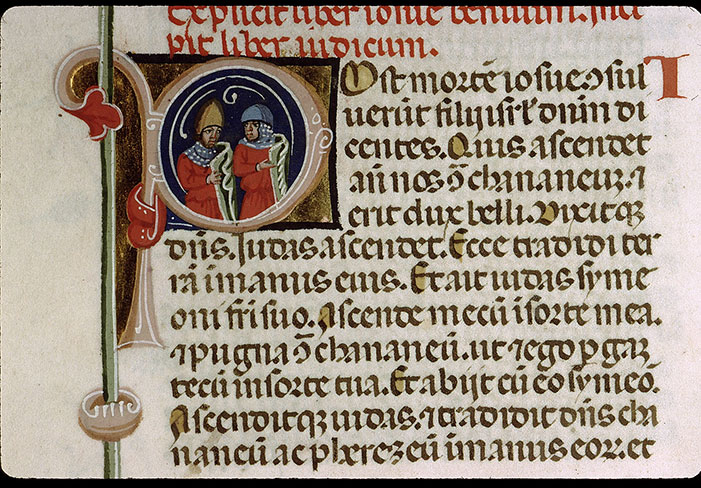 Explicit liber iosue bennum. Inci
pit liber iudicum.
Post mortē iosue ɔsul I
uerūt filij isrl̄ dnm̄ di
centes. Quis ascendet
an̄ nos ɔ̄ chananeuȝ. ⁊
erit dux belli. Dixitqȝ
dn̄s. Iudas ascendet. Ecce tradidi ter
rā ī manus eius. Et ait iudas syme
oni fr̄i suo. Ascende mecū ī sorte mea.
⁊ pugna ɔ̄ chananeū. ut ⁊ ego ꝑgaȝ
tecū in sorte tua. Et abijt cū eo symeō.
Ascenditqȝ iudas. ⁊ tradidit dn̄s cha
naneū ac pherezeū ī manus eoꝝ. et